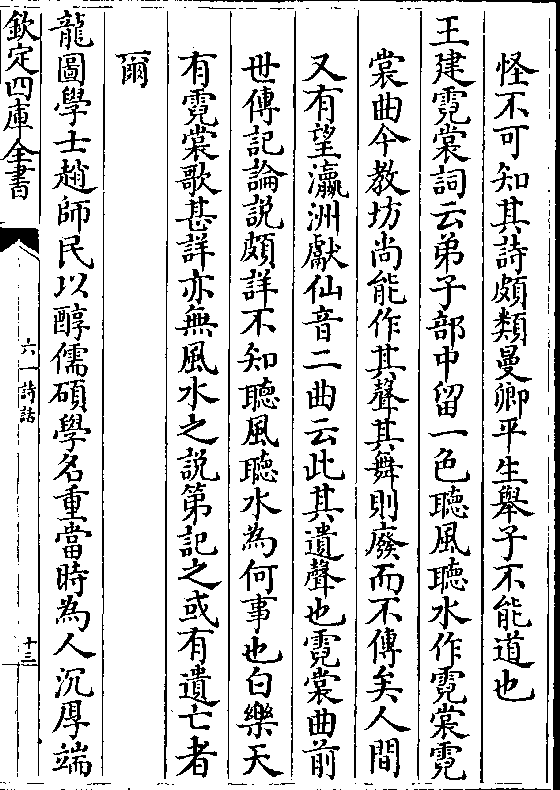 怪不可知其詩頗類曼卿平生舉子不能道也
王建霓裳詞云弟子部中留一色聽風聽水作霓裳霓
裳曲今教坊尚能作其聲其舞則廢而不傳矣人間
又有望瀛洲獻仙音二曲云此其遺聲也霓裳曲前
世傳記論說頗詳不知聽風聽水為何事也白樂天
有霓裳歌甚詳亦無風水之說第記之或有遺亡者
爾
龍圖學士趙師民以醇儒碩學名重當時為人沉厚端
欽定四庫全書
六一詩話
十三